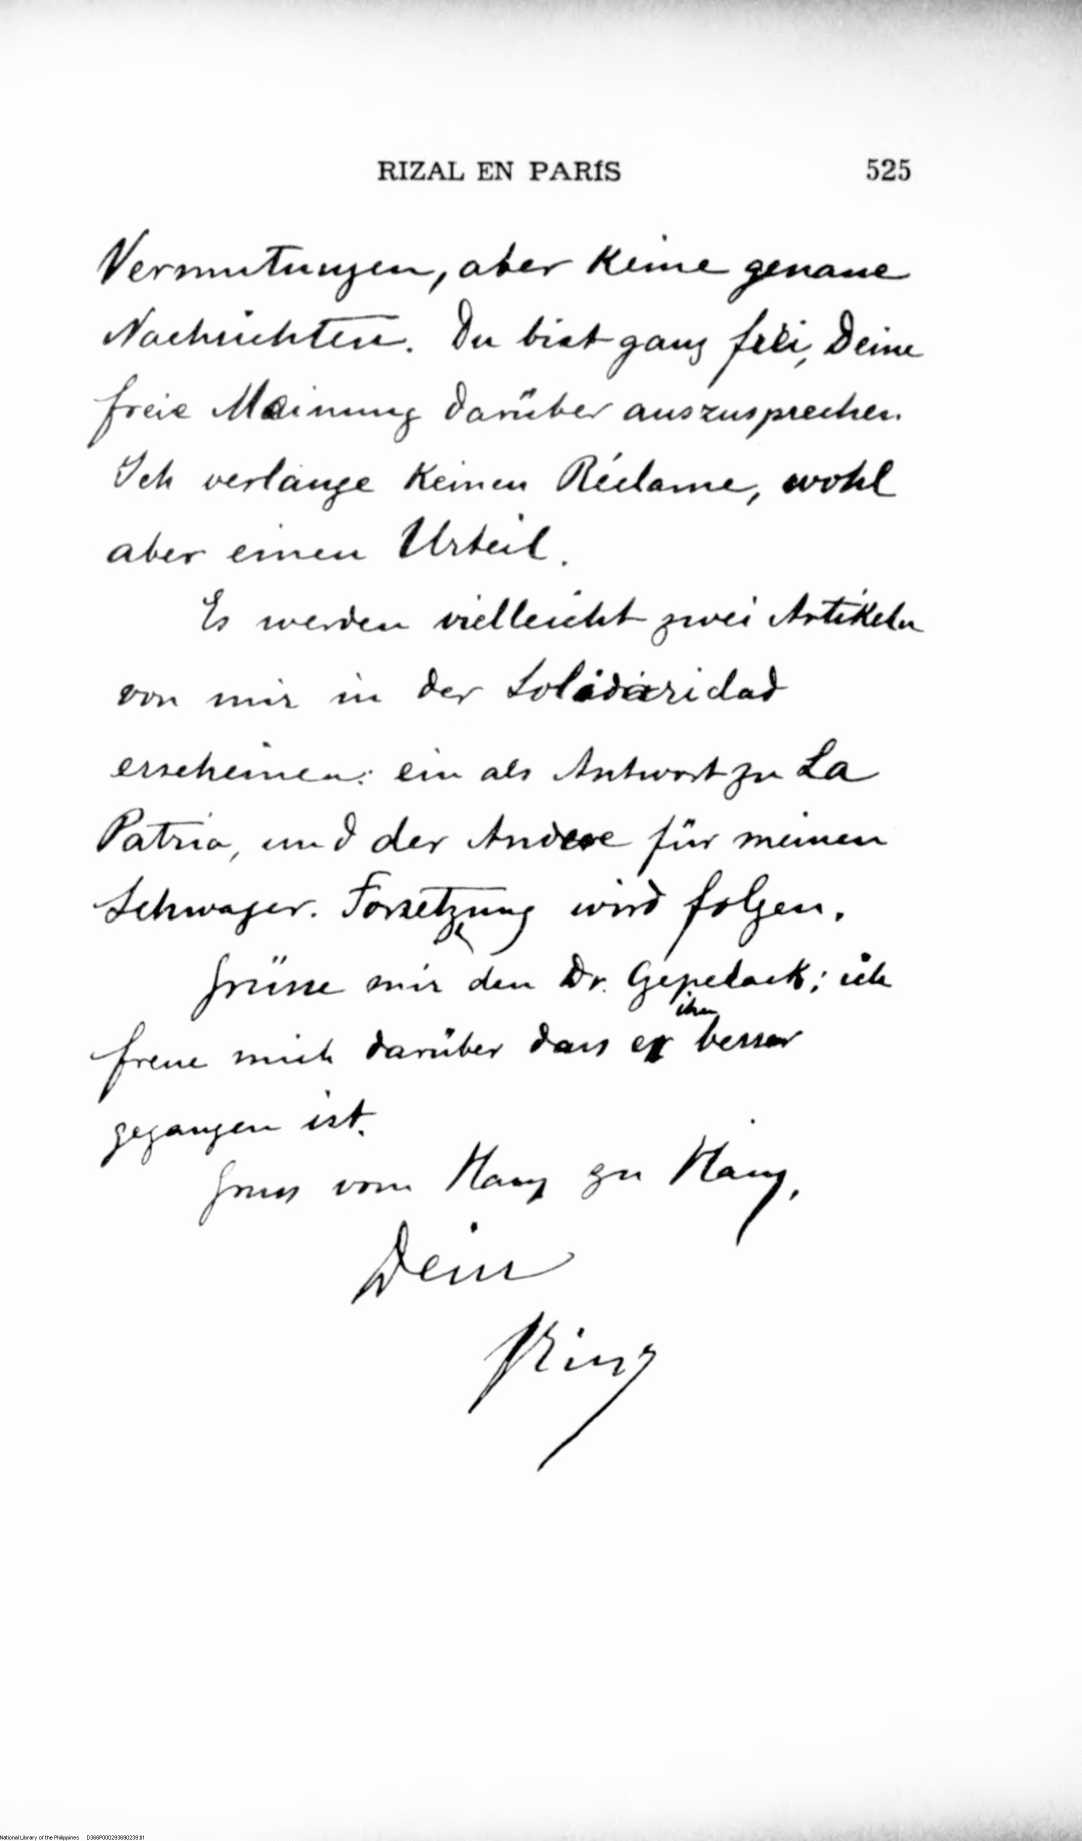 RIZAL EN PARÍS 525
Vermutungen, aber keine genaue
Nachrichten. Du bist ganz frei, Deine
freie Meinung darüber auszusprechen.
Ich verlange keinen Réclame, wohl
aber einen Urteil.
Es werden vielleicht zwei Artikeln
von mir in der Solidaridad
erscheinen: ein als Antwort zu La
Patria, und der Andere für meinen
Schwager. Forsetzung wird folgen.
Grüsse mir den Dr. ; ich
freue mich darüber dass er ihm besser
gegangen ist.
Gruss vom Haus zu Haus,
Dein
National Library of the Philippines